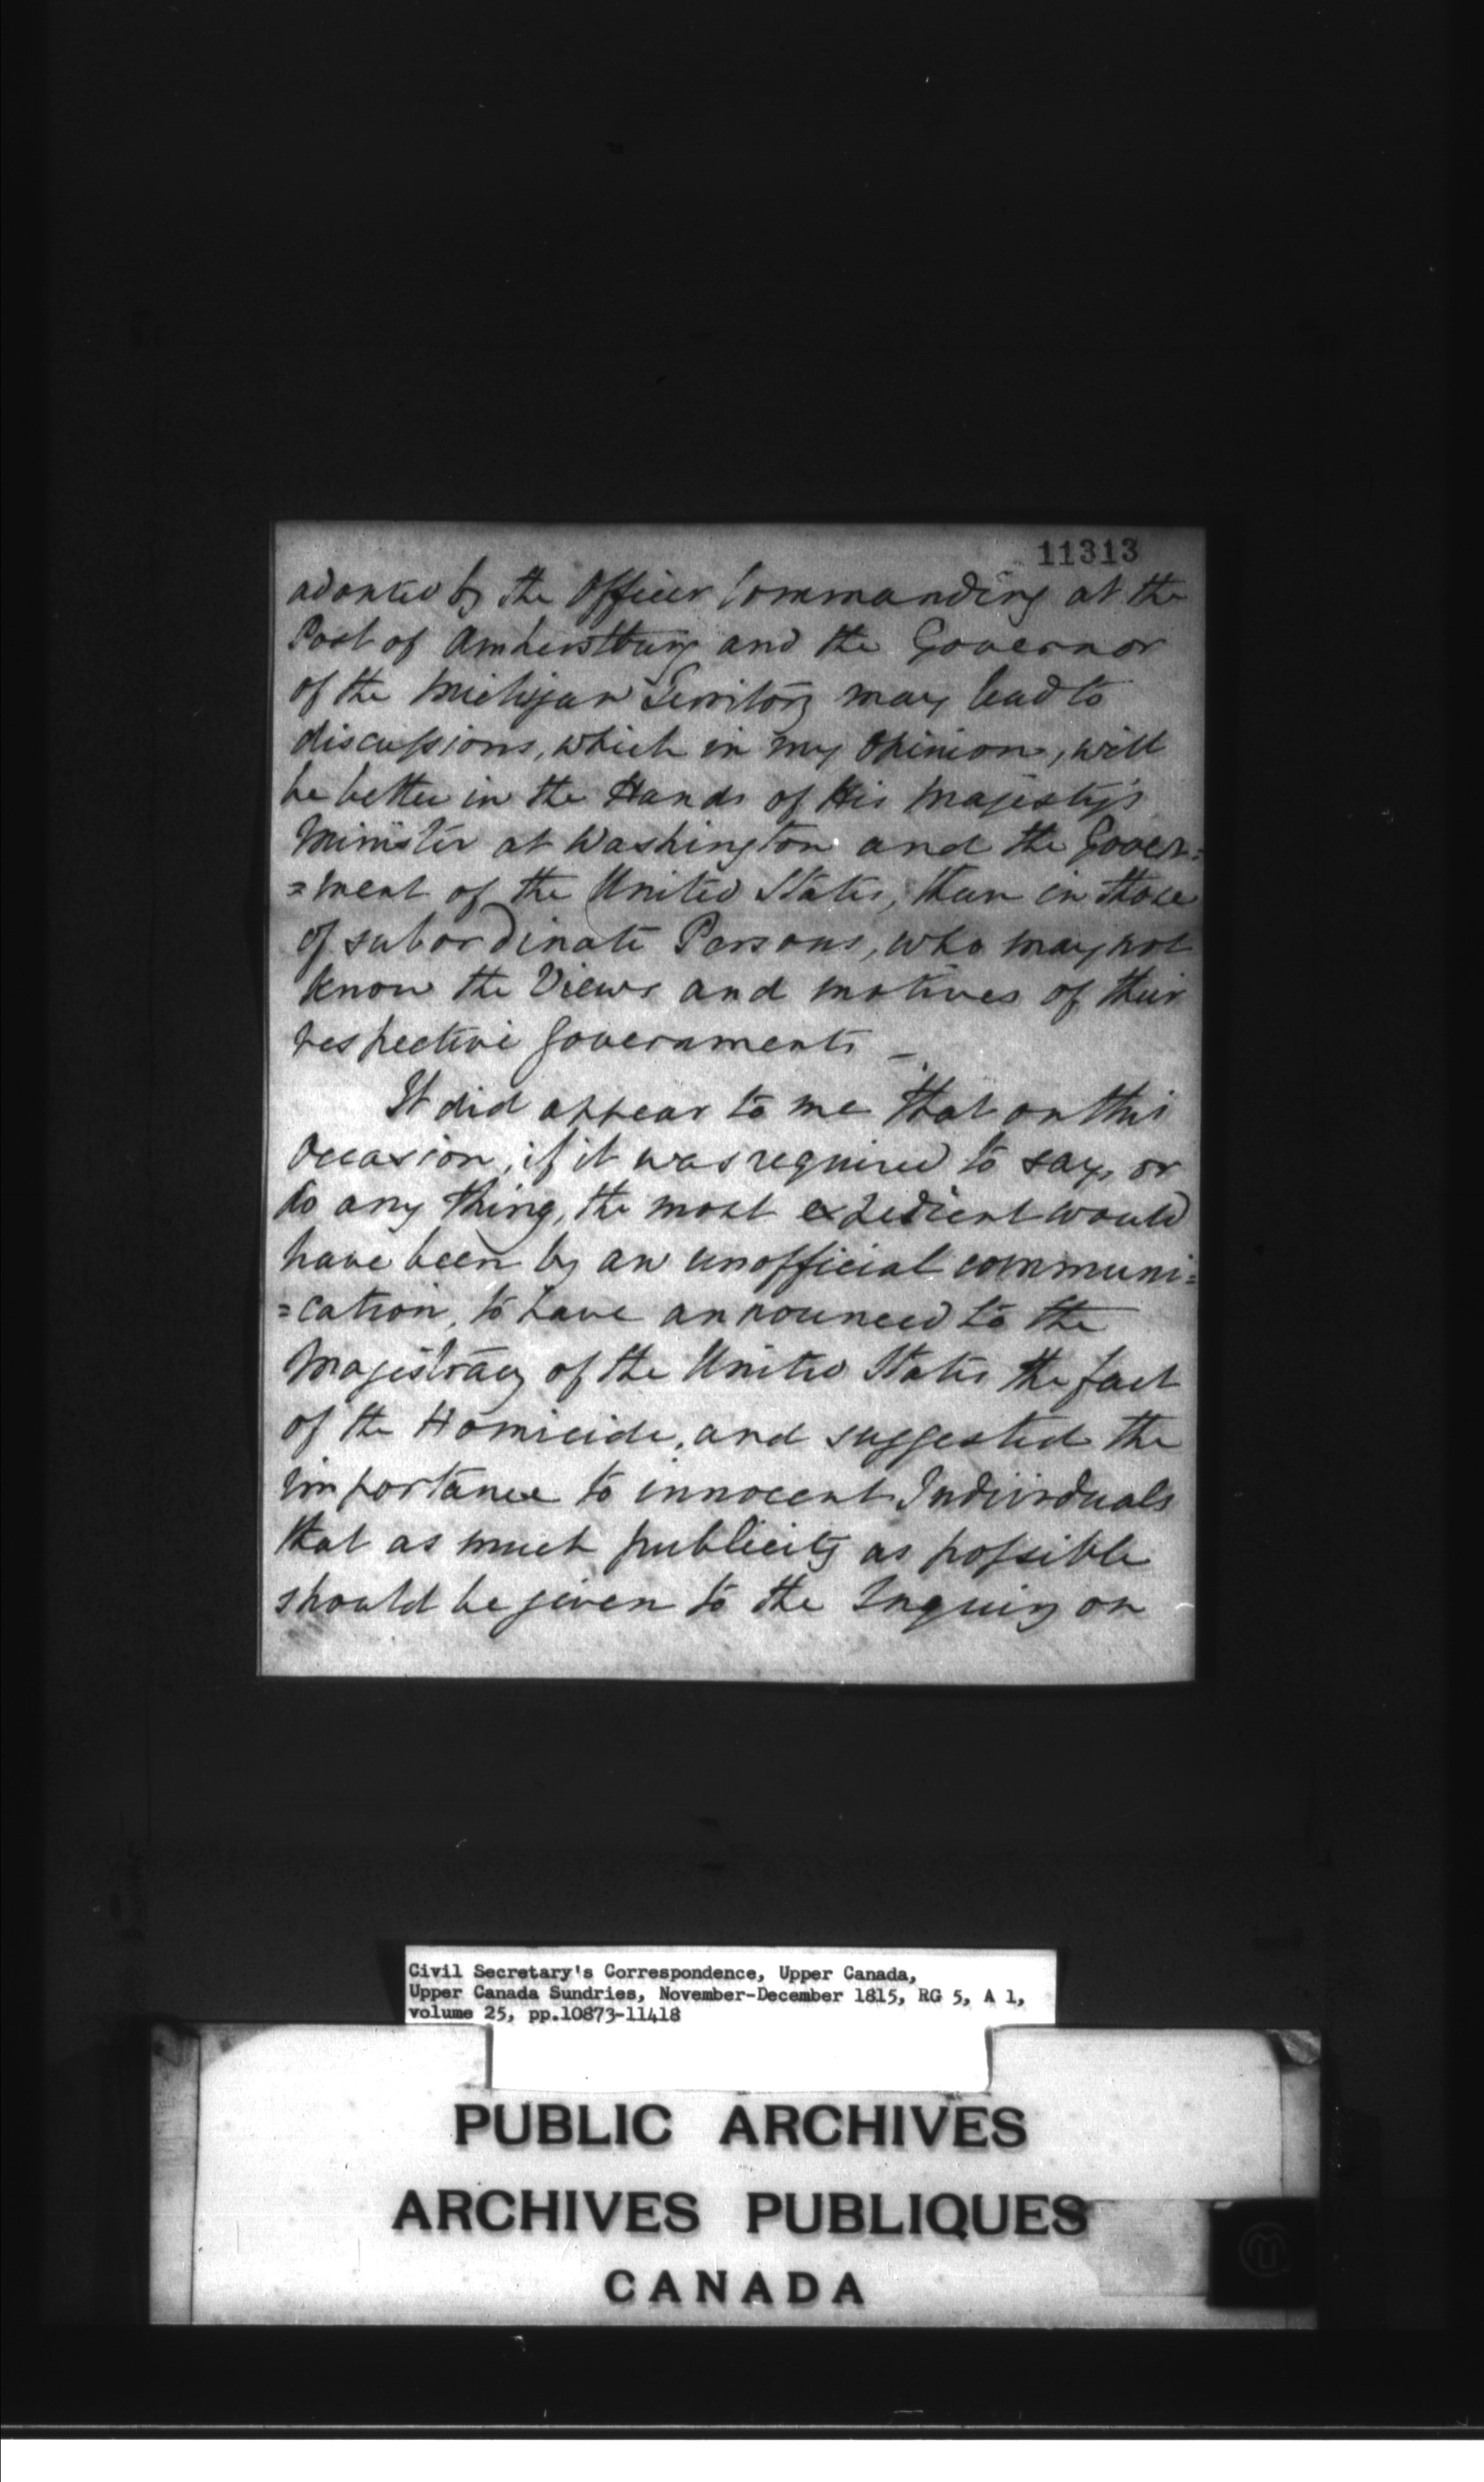 11313
adopted by the Officer Commanding at the
Post of Amherstburg and the Governor
of the Michigan Territory may lead to
discussions, which in my Opinion, will
be better in the Hands of His Majesty's
Minister at Washington and the Govern=
=ment of the United States, than in those
of subordinate Persons, who may not
know the Views and motives of their
respective Governments —
It did appear to me that on this
Occasion, if it was required to say, or
do any thing, the most expedient would
have been by an unofficial communi=
=cation, to have announced to the
Magistracy of the United States the fact
of the Homicide, and suggested the
importance to innocent Individuals
that as much publicity as possible
should be given to the Inquiry on
Civil Secretary's Correspondence, Upper Canada,
Upper Canada Sundries, November-December 1815, RG 5, A 1,
volume 25, pp.10873-11418
PUBLIC ARCHIVES
ARCHIVES PUBLIQUES
CANADA